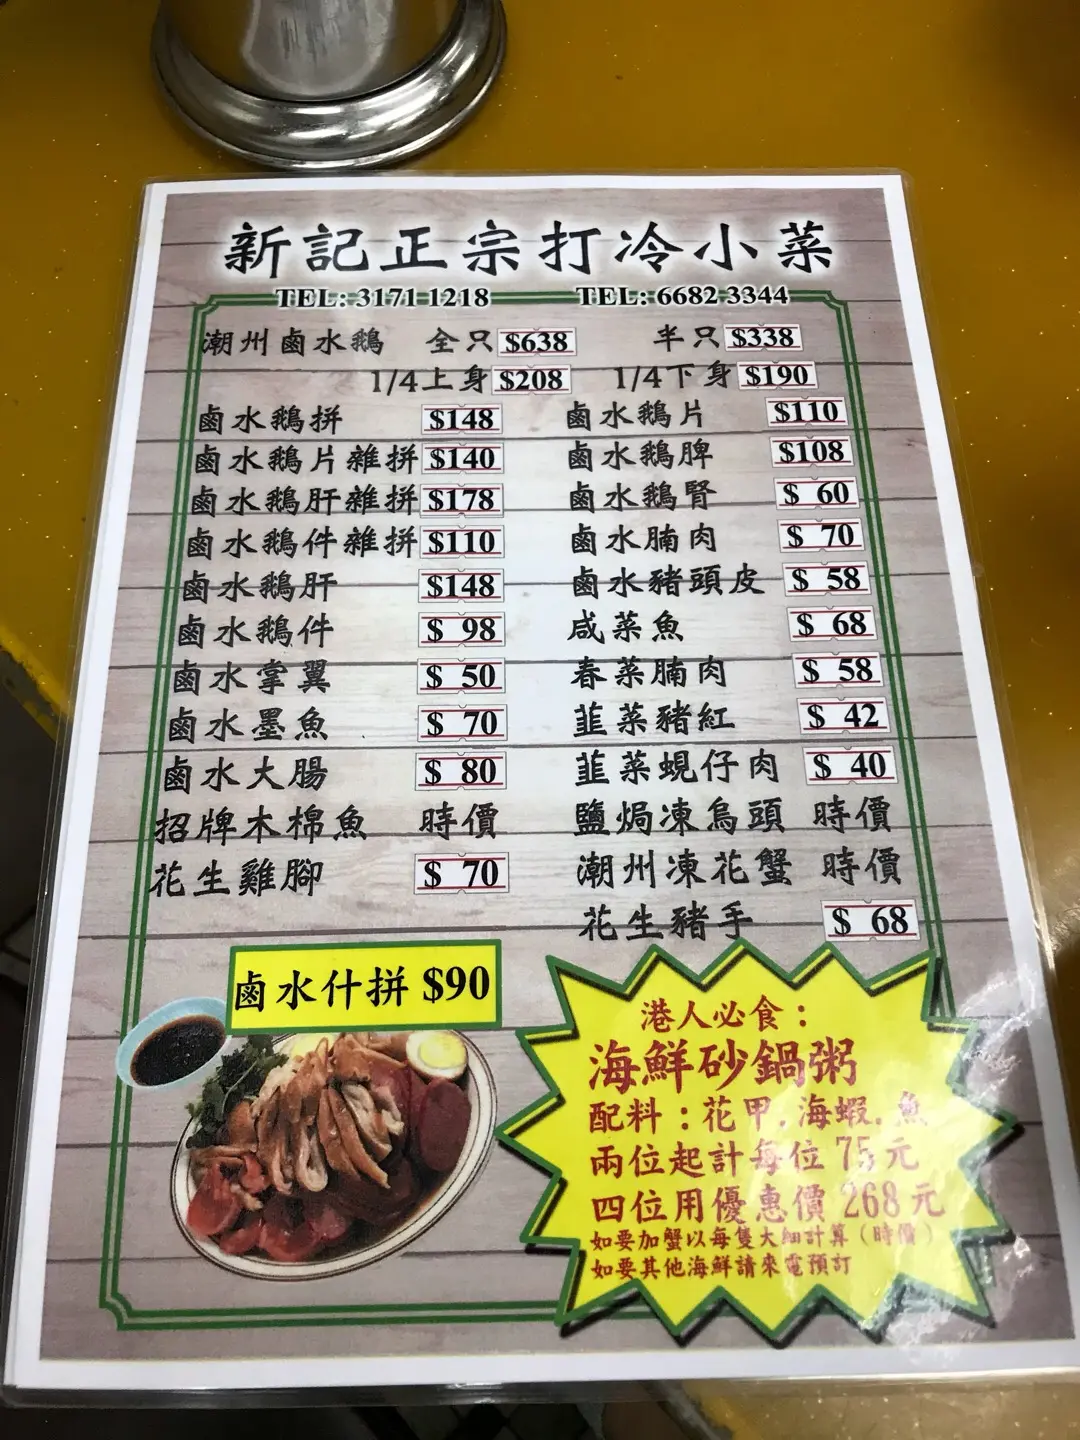 新記正宗打冷小菜
TEL: 3171 1218 TEL: 6682 3344
潮州鹵水鵝 全只 $638 半只 $338
1/4上身 $208 1/4下身 $190
鹵水鵝拼 $148 鹵水鵝片 $110
鹵水鵝片雜拼 $140 鹵水鵝脾 $108
鹵水鵝肝雜拼 $178 鹵水鵝腎 $ 60
鹵水鵝件雜拼 $110 鹵水腩肉 $ 70
鹵水鵝肝 $148 鹵水豬頭皮 $ 58
鹵水鵝件 $ 98 咸菜魚 $ 68
鹵水掌翼 $ 50 春菜腩肉 $ 58
鹵水墨魚 $ 70 韮菜豬紅 $ 42
鹵水大腸 $ 80 韮菜蜆仔肉 $ 40
招牌木棉魚 時價 鹽焗凍烏頭 時價
花生雞腳 $ 70 潮州凍花蟹 時價
花生豬手 $ 68
鹵水什拼 $90
港人必食：
海鮮砂鍋粥
配料：花甲.海蝦.魚
兩位起計每位 75 元
四位用優惠價 268 元
如要加蟹以每隻大細計算（時價）
如要其他海鮮請來電預訂